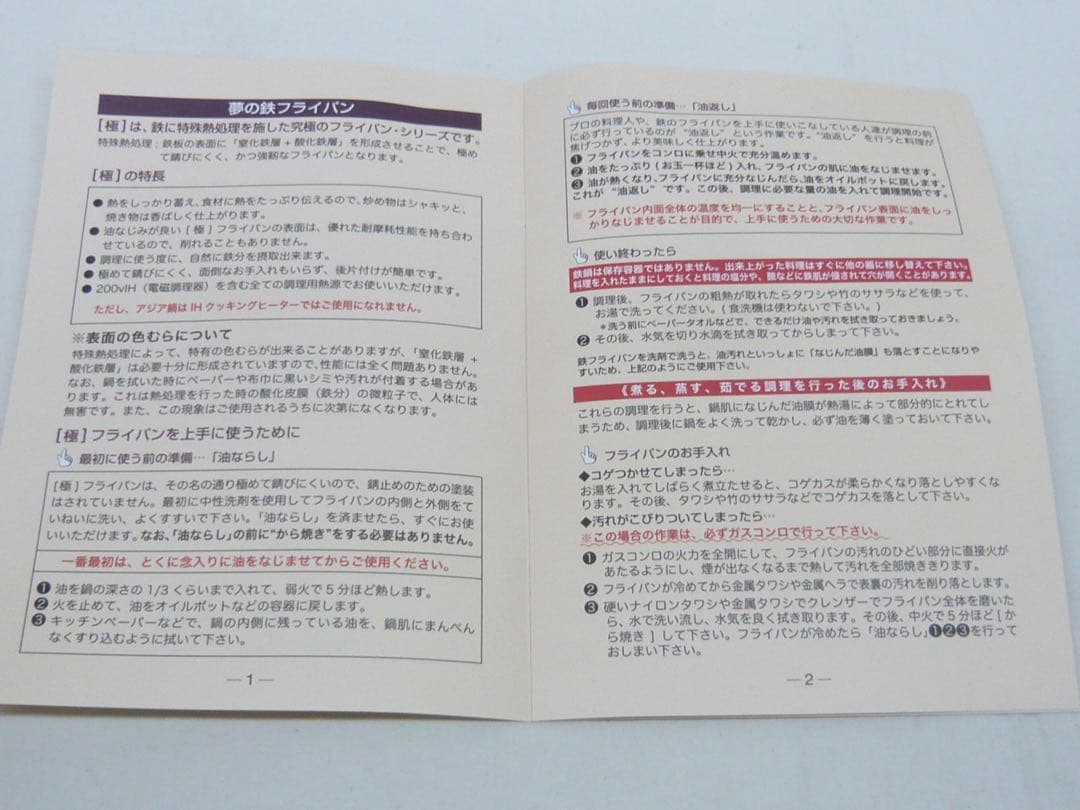 夢の鉄フライパン
[極]は、鉄に特殊熱処理を施した究極のフライパン・シリーズです。
特殊熱処理：鉄板の表面に「窒化鉄層＋酸化鉄層」を形成させることで、極め
て錆びにくく、かつ強靭なフライパンとなります。
[極]の特長
● 熱をしっかり蓄え、食材に熱をたっぷり伝えるので、炒め物はシャキッと、
焼き物は香ばしく仕上がります。
● 油なじみが良い[極]フライパンの表面は、優れた耐摩耗性能を持ち合わ
せているので、削れることもありません。
● 調理に使う度に、自然に鉄分を摂取出来ます。
● 極めて錆びにくく、面倒なお手入れもいらず、後片付けが簡単です。
● 200vIH（電磁調理器）を含む全ての調理用熱源でお使いいただけます。
ただし、アジア鍋は IH クッキングヒーターではご使用になれません。
※表面の色むらについて
特殊熱処理によって、特有の色むらが出来ることがありますが、「窒化鉄層＋
酸化鉄層」は必要十分に形成されていますので、性能には全く問題ありません。
なお、鍋を拭いた時にペーパーや布巾に黒いシミや汚れが付着する場合があ
ります。これは熱処理を行った時の酸化皮膜（鉄分）の微粒子で、人体には
無害です。また、この現象はご使用されるうちに次第になくなります。
[極]フライパンを上手に使うために
最初に使う前の準備…「油ならし」
[極]フライパンは、その名の通り極めて錆びにくいので、錆止めのための塗装
はされていません。最初に中性洗剤を使用してフライパンの内側と外側をて
いねいに洗い、よくすすいで下さい。「油ならし」を済ませたら、すぐにお使
いいただけます。なお、「油ならし」の前に“から焼き”をする必要はありません。
一番最初は、とくに念入りに油をなじませてからご使用ください。
❶ 油を鍋の深さの 1/3 くらいまで入れて、弱火で5分ほど熱します。
❷ 火を止めて、油をオイルポットなどの容器に戻します。
❸ キッチンペーパーなどで、鍋の内側に残っている油を、鍋肌にまんべん
なくすり込むように拭いて下さい。
—1—
毎回使う前の準備…「油返し」
プロの料理人や、鉄のフライパンを上手に使いこなしている人達が調理の前
に必ず行っているのが“油返し”という作業です。“油返し”を行うと料理が
焦げつかず、より美味しく仕上がります。
❶ フライパンをコンロに乗せ中火で充分温めます。
❷ 油をたっぷり(お玉一杯ほど)入れ、フライパンの肌に油をなじませます。
❸ 油が熱くなり、フライパンに充分なじんだら、油をオイルポットに戻します。
これが“油返し”です。この後、調理に必要な量の油を入れて調理開始です。
※ フライパン内面全体の温度を均一にすることと、フライパン表面に油をしっ
かりなじませることが目的で、上手に使うための大切な作業です。
使い終わったら
鉄鍋は保存容器ではありません。出来上がった料理はすぐに他の器に移し替えて下さい。
料理を入れたままにしておくと料理の塩分や、酸などに鉄肌が侵されて穴が開くことがあります。
❶ 調理後、フライパンの粗熱が取れたらタワシや竹のササラなどを使って、
お湯で洗ってください。(食洗機は使わないで下さい。)
＊洗う前にペーパータオルなどで、できるだけ油や汚れを拭き取っておきましょう。
❷ その後、水気を切り水滴を拭き取ってからしまって下さい。
鉄フライパンを洗剤で洗うと、油汚れといっしょに「なじんだ油膜」も落とすことになりや
すいため、上記のようにご使用下さい。
《煮る、蒸す、茹でる調理を行った後のお手入れ》
これらの調理を行うと、鍋肌になじんだ油膜が熱湯によって部分的にとれてし
まうため、調理後に鍋をよく洗って乾かし、必ず油を薄く塗っておいて下さい。
フライパンのお手入れ
◆コゲつかせてしまったら…
お湯を入れてしばらく煮立たせると、コゲカスが柔らかくなり落としやすくな
ります。その後、タワシや竹のササラなどでコゲカスを落として下さい。
◆汚れがこびりついてしまったら…
※この場合の作業は、必ずガスコンロで行って下さい。
❶ ガスコンロの火力を全開にして、フライパンの汚れのひどい部分に直接火が
あたるようにし、煙が出なくなるまで熱して汚れを全部焼ききります。
❷ フライパンが冷めてから金属タワシや金属ヘラで表裏の汚れを削り落とします。
❸ 硬いナイロンタワシや金属タワシでクレンザーでフライパン全体を磨いた
ら、水で洗い流し、水気を良く拭き取ります。その後、中火で5分ほど[か
ら焼き]して下さい。フライパンが冷めたら「油ならし」❶❷❸を行って
おしまい下さい。
—2—